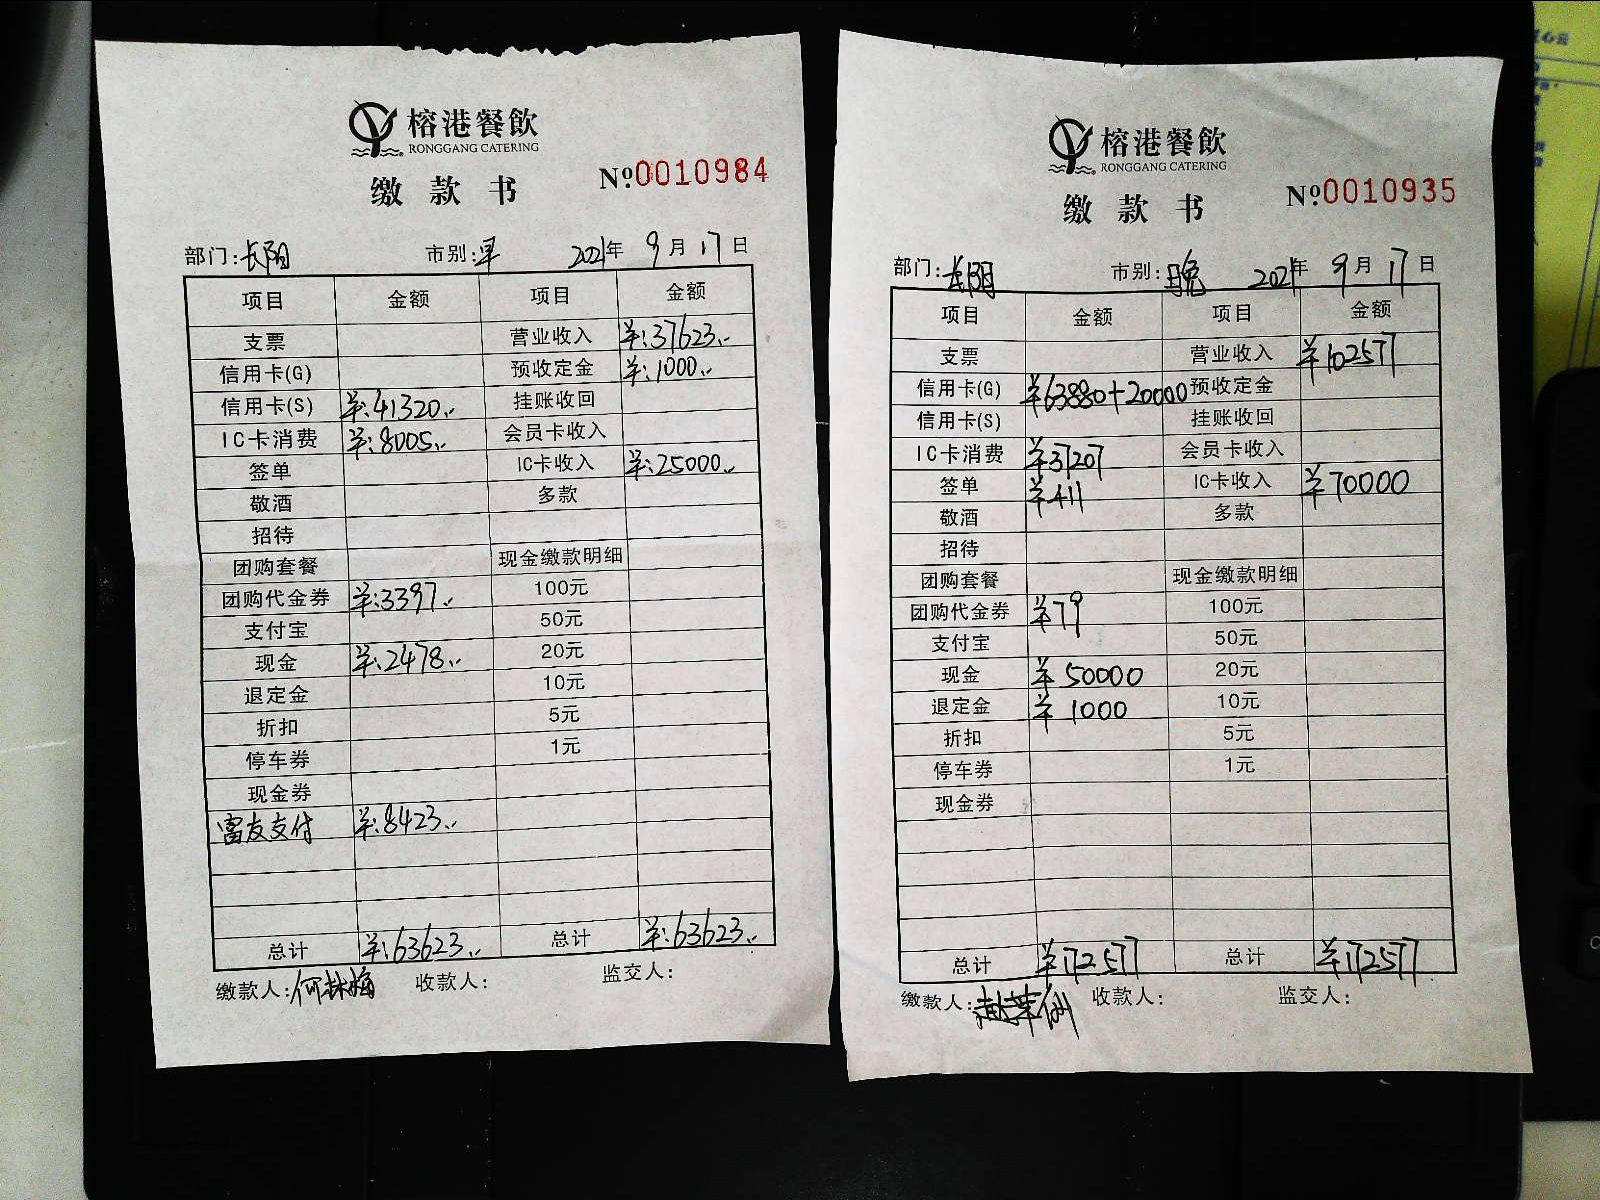 榕港餐飲
RONGGANG CATERING
缴款书
Nº.0010984
部门:长阳 市别:早 2021年9月17日
项目 金额 项目 金额
支票 营业收入 ¥:37623..
信用卡(G) 预收定金 ¥:1000..
信用卡(S) ¥:41320.. 挂账收回
IC卡消费 ¥:8005.. 会员卡收入
签单 IC卡收入 ¥:25000..
敬酒 多款
招待
团购套餐 现金缴款明细
团购代金券 ¥:3397.. 100元
支付宝 50元
现金 ¥:2478.. 20元
退定金 10元
折扣 5元
停车券 1元
现金券
富友支付 ¥:8423..
总计 ¥:63623.. 总计 ¥:63623..
缴款人:何林梅 收款人: 监交人:
榕港餐飲
RONGGANG CATERING
缴款书
Nº.0010935
部门:长阳 市别:晚 2021年9月17日
项目 金额 项目 金额
支票 营业收入 ¥102577
信用卡(G) ¥63880+20000 预收定金
信用卡(S) 挂账收回
IC卡消费 ¥37207 会员卡收入
签单 ¥411 IC卡收入 ¥70000
敬酒 多款
招待
团购套餐 现金缴款明细
团购代金券 ¥79 100元
支付宝 50元
现金 ¥50000 20元
退定金 ¥1000 10元
折扣 5元
停车券 1元
现金券
总计 ¥172577 总计 ¥172577
缴款人: 收款人: 监交人: